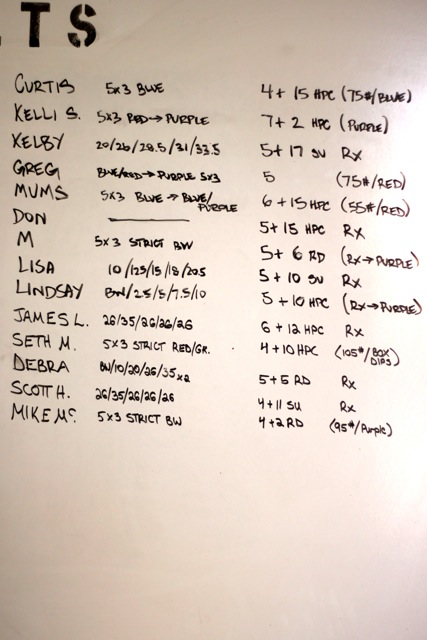 LTS
CURTIS 5x3 BLUE 4 + 15 HPC (75#/BLUE)
KELLI S. 5x3 RED→PURPLE 7 + 2 HPC (PURPLE)
KELBY 20/26/28.5/31/33.5 5 + 17 SU RX
GREG BLUE/RED→PURPLE 5x3 5 (75#/RED)
MUMS 5x3 BLUE→BLUE/PURPLE 6 + 15 HPC (55#/RED)
DON 5 + 15 HPC RX
M 5x3 STRICT BW 5 + 6 RD (RX→PURPLE)
LISA 10/12.5/15/18/20.5 5 + 10 SU RX
LINDSAY BW/2.5/5/7.5/10 5 + 10 HPC (RX→PURPLE)
JAMES L. 26/35/26/26/26 6 + 12 HPC RX
SETH M. 5x3 STRICT RED/GR. 4 + 10 HPC (105#/BOX DIPS)
DEBRA BW/10/20/26/35 x2 5 + 5 RD RX
SCOTT H. 26/35/26/26/26 4 + 11 SU RX
MIKE Mc. 5x3 STRICT BW 4 + 2 RD (95#/Purple)